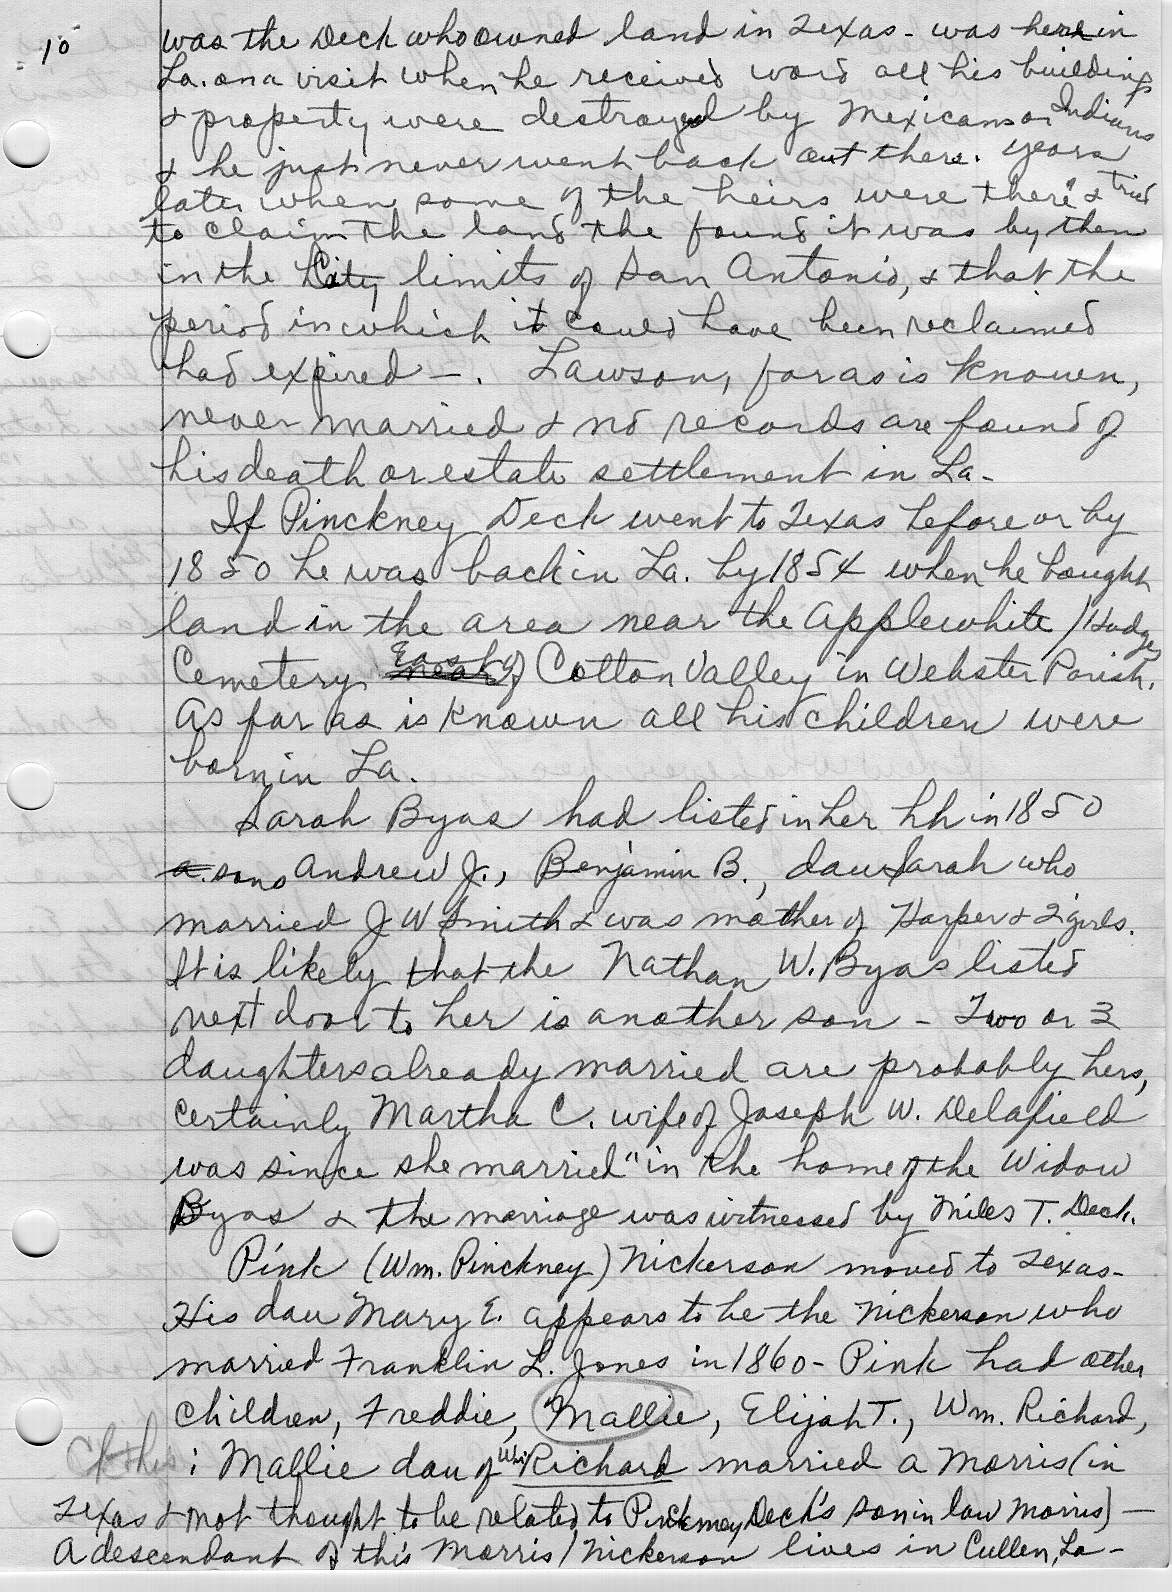 10
was the Deck who owned land in Texas - was here in
La. on a visit when he received word all his buildings
& property were destroyed by Mexicans or Indians
& he just never went back out there. Years
later when some of the heirs were there & tried
to claim the land the found it was by then
in the City limits of San Antonio, & that the
period in which it could have been reclaimed
had expired -. Lawson, far as is known,
never married & no records are found of
his death or estate settlement in La -
If Pinckney Deck went to Texas before or by
1850 he was back in La. by 1854 when he bought
land in the area near the Applewhite / Hodges
Cemetery East of Cotton Valley in Webster Parish.
As far as is known all his children were
born in La.
Sarah Byas had listed in her hh in 1850
sons Andrew J., Benjamin B., dau Sarah who
married J W Smith & was mother of Harper & 2 girls.
It is likely that the Nathan W. Byas listed
next door to her is another son - Two or 3
daughters already married are probably hers,
certainly Martha C. wife of Joseph W. Delafield
was since she married "in the home of the Widow
Byas & the marriage was witnessed by Miles T. Deck.
Pink (Wm. Pinckney) Nickerson moved to Texas -
His dau Mary E. appears to be the Nickerson who
married Franklin L. Jones in 1860 - Pink had other
children, Freddie, Mallie, Elijah T., Wm. Richard,
: Mallie dau of Wm Richard married a Morris (in
Texas & not thought to be related to Pinckney Deck's son in law Morris) -
A descendant of this Morris / Nickerson lives in Cullen, La -